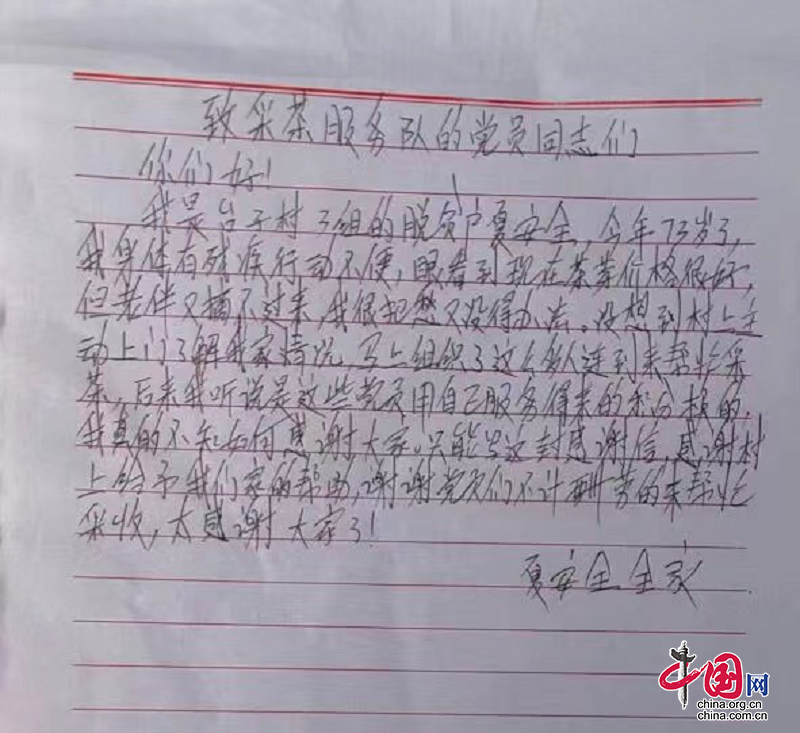 致采茶服务队的党员同志们
你们好!
我是台子村3组的脱贫户夏安全,今年73岁了,
我身体有残疾行动不便,眼看到现在茶芽价格很好,
但老伴又摘不过来,我很犯愁又没得办法。没想到村上主
动上门了解我家情况,马上组织了这么多人连到来帮忙采
茶,后来我听说是这些党员用自己服务得来的积分换的.
我真的不知如何感谢大家。只能写这封感谢信,感谢村
上给予我们家的帮助,谢谢党员们不计酬劳的来帮忙
采收,太感谢大家了!
夏安全全家
中国网
china.org.cn
china.com.cn